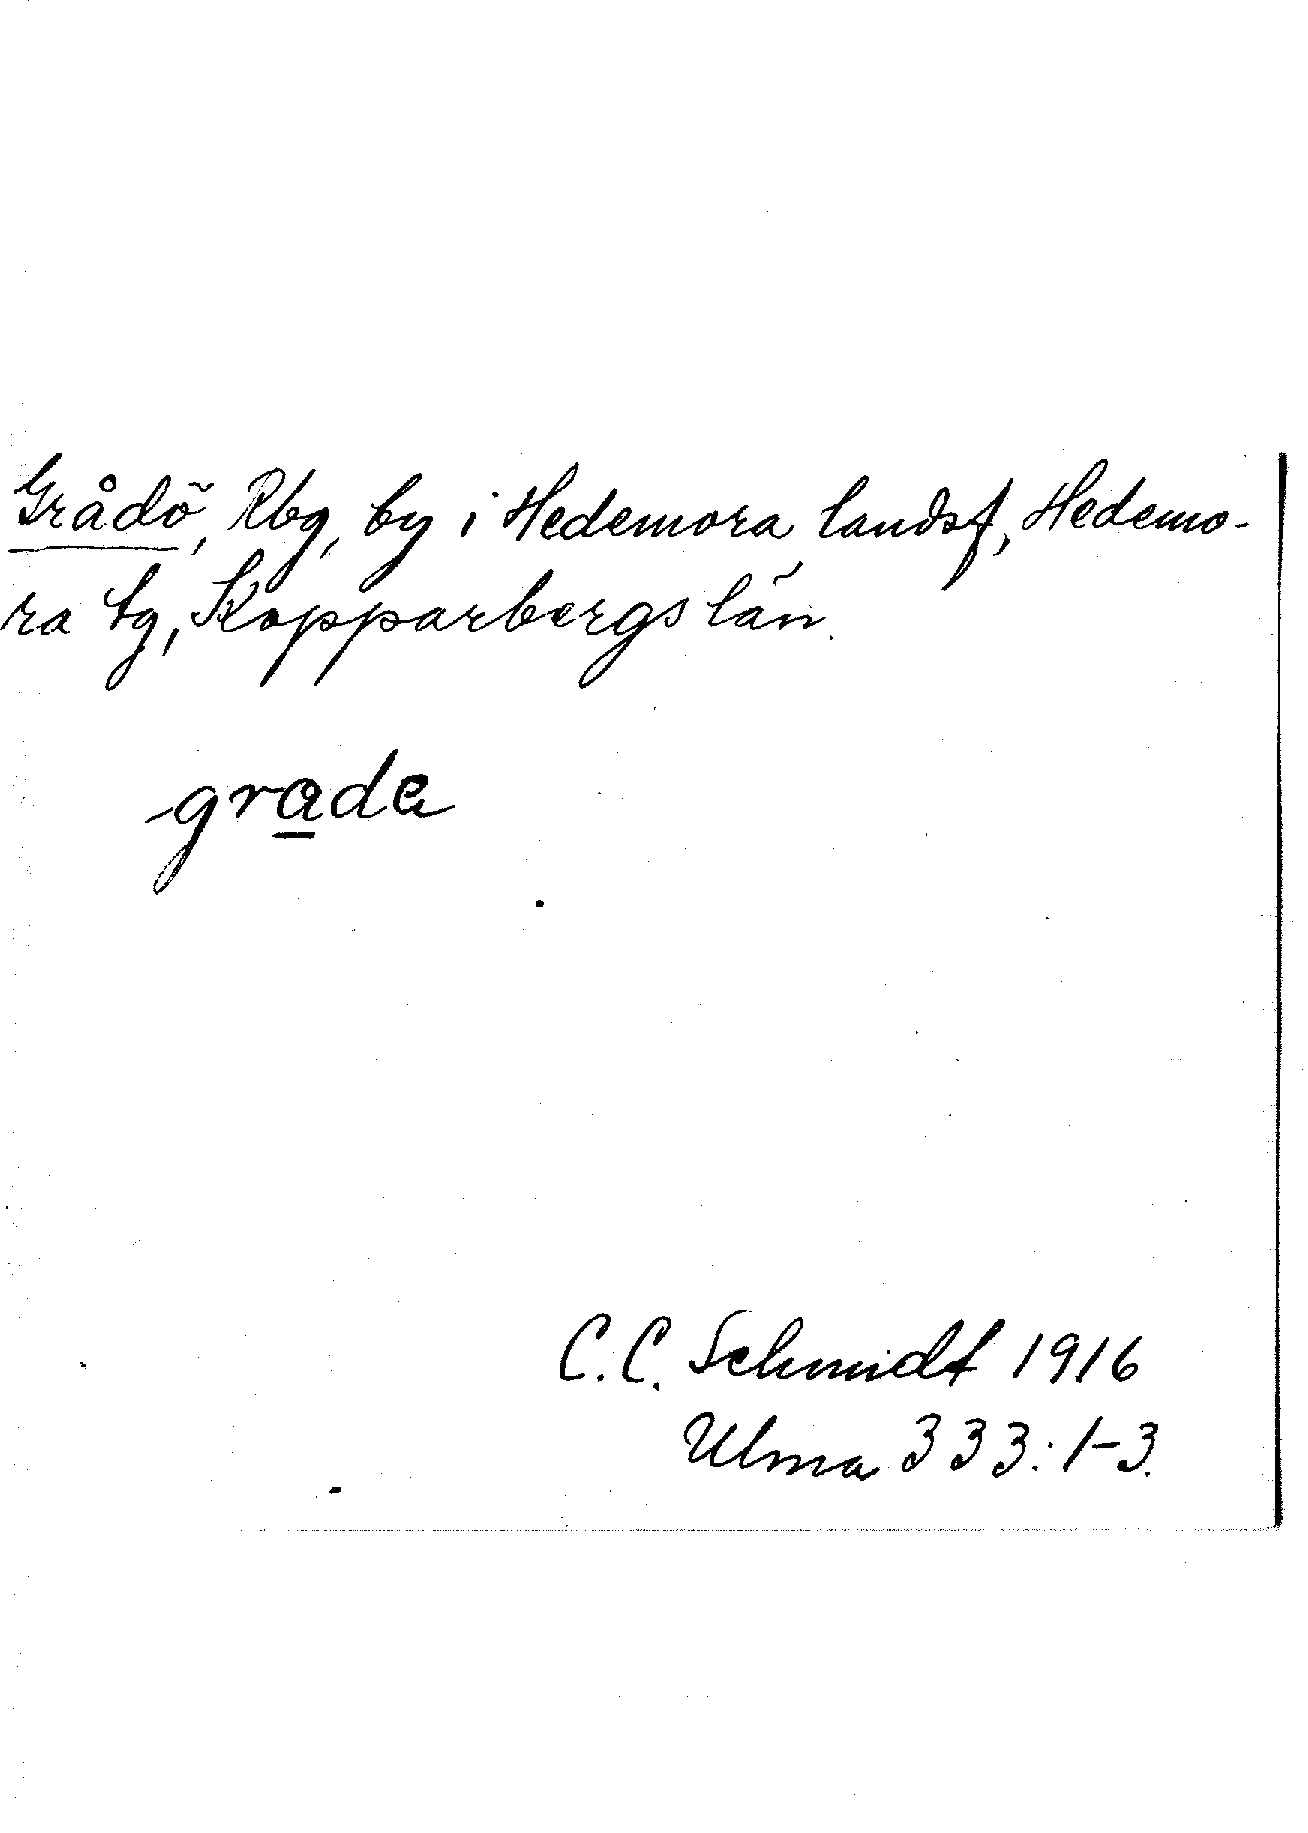 Grådö, Rbg, by i Hedemora landsf, Hedemo-
ra tg, Kopparbergs län.
grada
C.C. Schmidt 1916
Ulma 333:1-3.